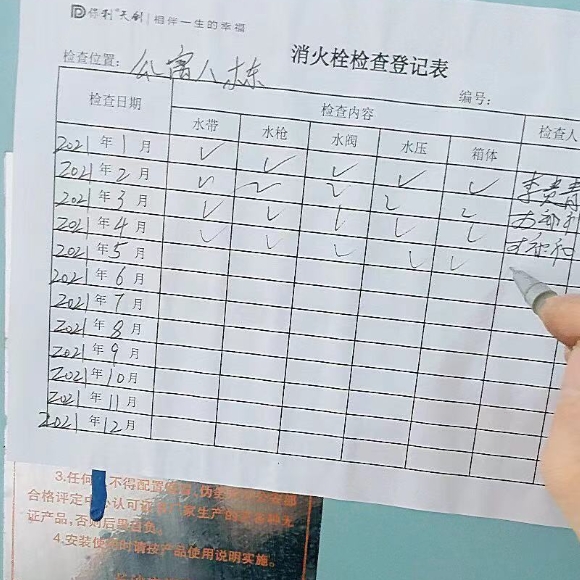 保利天剑 | 相伴一生的幸福
消火栓检查登记表
检查位置: 公寓A栋
编号:
检查日期 检查内容 检查人
水带 水枪 水阀 水压 箱体
2021年1月 ✓ ✓ ✓ ✓ ✓
2021年2月 ✓ ✓ ✓ ✓ ✓
2021年3月 ✓ ✓ ✓ ✓ ✓
2021年4月 ✓ ✓ ✓ ✓ ✓
2021年5月
2021年6月
2021年7月
2021年8月
2021年9月
2021年10月
2021年11月
2021年12月
3.任何 不得配置
合格评定中心认可 家生产的
证产品,否则后果自负。
4.安装使用时请按产品使用说明实施。